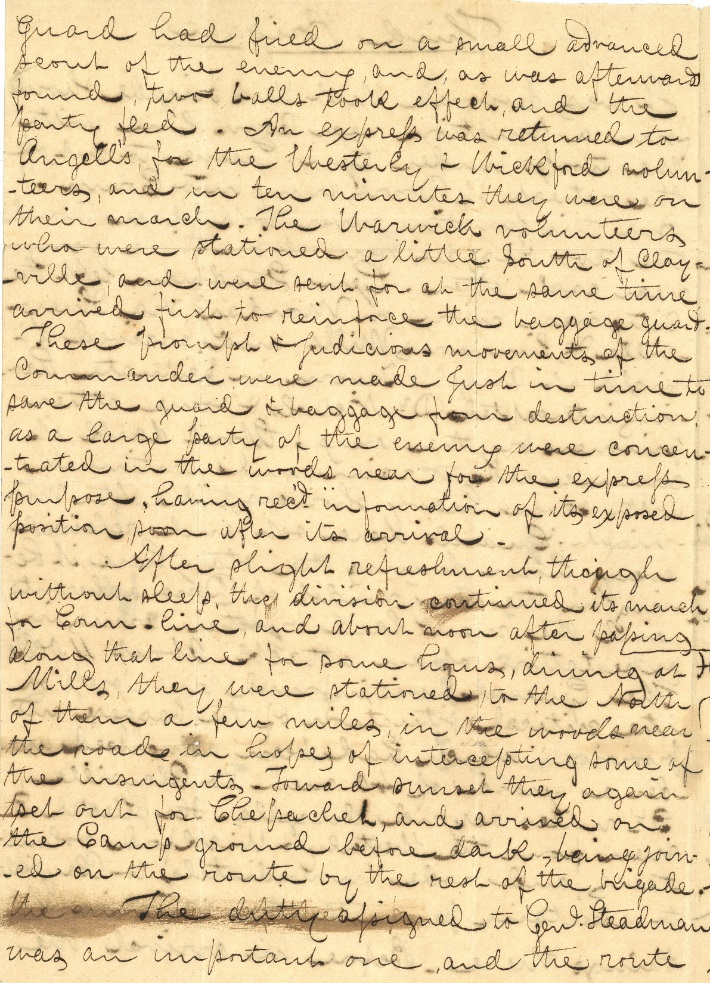 Guard had fired on a small advanced
scout of the enemy, and, as was afterward
found, two balls took effect, and the
party fled. An express was returned to
Angell's for the Westerly & Wickford volun-
-teers, and in ten minutes they were on
their march. The Warwick volunteers
who were stationed a little South of Clay-
-ville, and were sent for at the same time
arrived first to reinforce the baggage guard.
These prompt & judicious movements of the
Commander were made just in time to
save the guard & baggage from destruction,
as a large party of the enemy were concen-
-trated in the woods near for the express
purpose, having rec'd information of its exposed
position soon after its arrival.
After slight refreshment, though
without sleep, the division continued its march
for Conn-line, and about noon after passing
along that line for some hours, dining at
Mills, they were stationed to the North
of them a few miles, in the woods near
the road, in hopes of intercepting some of
the insurgents. Toward sunset they again
set out for Chepachet, and arrived on
the Camp ground before dark, being join-
-ed on the route by the rest of the brigade.
The duty assigned to Genl. Steadman
was an important one, and the route